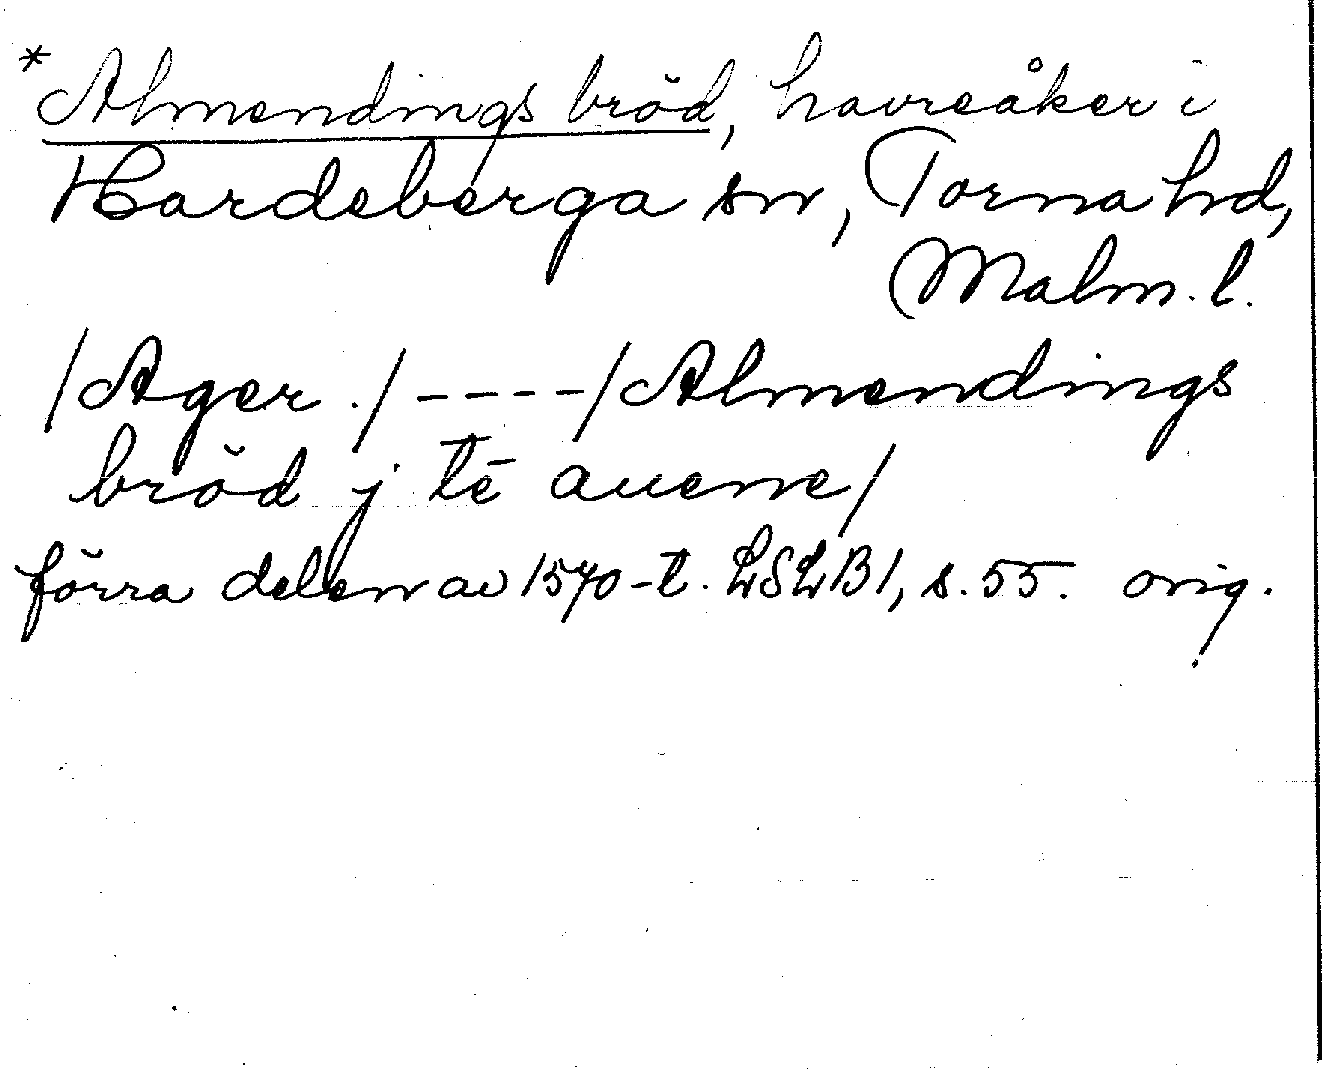 *Almendings bröd, havreåker i
Hardeberga sn, Torna hd,
Malm. l.
/Ager ./----/Almendings
bröd j tē auene/
förra delen av 1570-t. LSLB1, s. 55. orig.